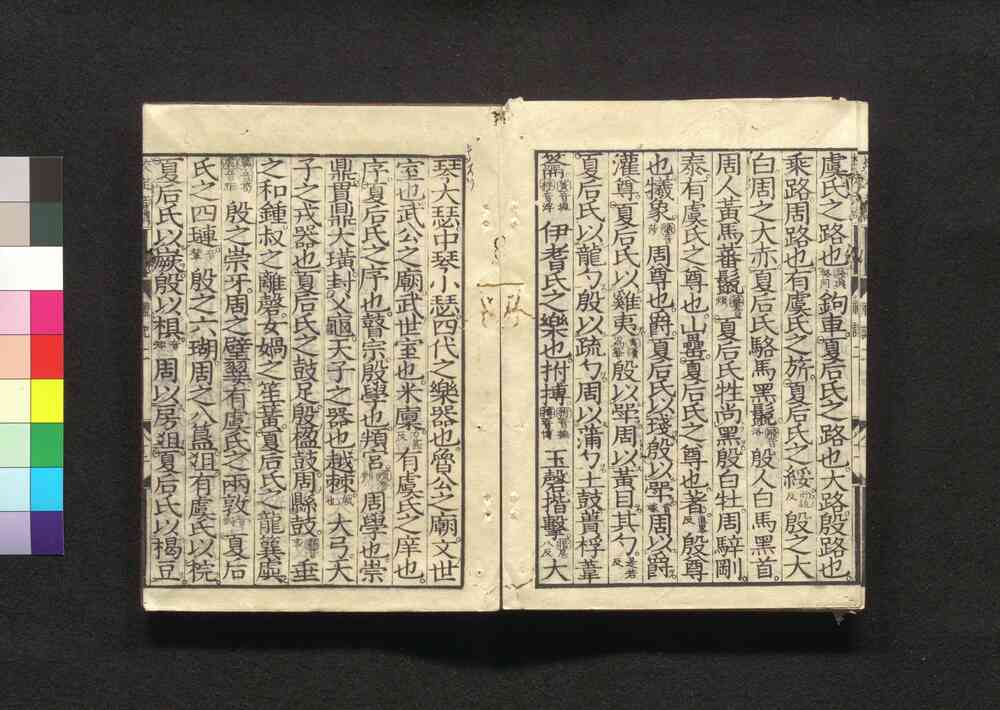 虞氏之路也鉤車夏后氏之路也大路殷路也
乘路周路也有虞氏之旂夏后氏之綏反殷之大
白周之大赤夏后氏駱馬黑鬣殷人白馬黑首
周人黃馬蕃鬣夏后氏牲尚黑殷白牡周騂剛
泰有虞氏之尊也山罍夏后氏之尊也著反殷尊
也犧象周尊也爵夏后氏以琖殷以斝周以爵
灌尊夏后氏以雞夷殷以斝周以黃目其勺反
夏后氏以龍勺殷以疏勺周以蒲勺土鼓蕢桴葦
籥伊耆氏之樂也拊搏玉磬揩擊八反大
琴大瑟中琴小瑟四代之樂器也魯公之廟文世
室也武公之廟武世室也米廩反有虞氏之庠也
序夏后氏之序也瞽宗殷學也頖宮周學也崇
鼎貫鼎大璜封父龜天子之器也越棘大弓天
子之戎器也夏后氏之鼓足殷楹鼓周縣鼓垂
之和鍾叔之離磬女媧之笙黃夏后氏之龍簨虡
殷之崇牙周之璧翣有虞氏之兩敦夏后
氏之四璉殷之六瑚周之八簋俎有虞氏以梡
夏后氏以嶡殷以椇周以房俎夏后氏以楬豆